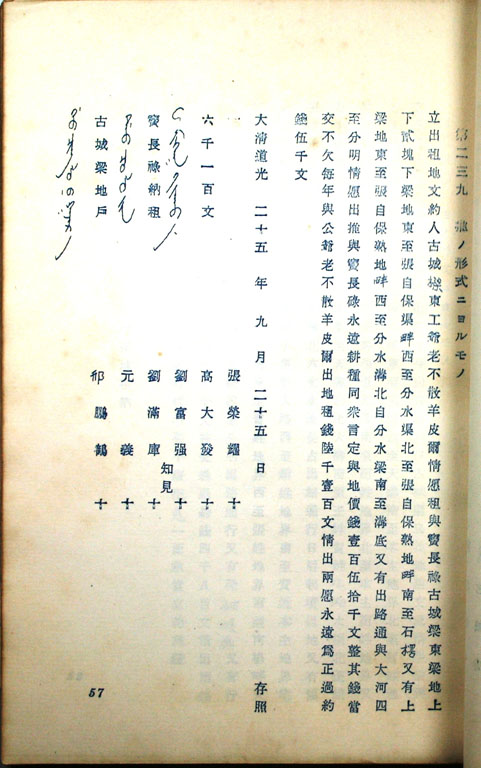 第二三九 漢ノ形式ニヨルモノ
立出租地文約人古城梁東工爺老不散羊皮爾情愿租與竇長祿古城梁東梁地上
下貳塊下梁地東至張自保渠畔西至分水渠北至張自保熟地畔南至石樗又有上
梁地東至張自保熟地畔西至分水溝北自分水梁南至溝底又有出路通與大河四
至分明情愿出推與竇長祿永遠耕種同衆言定與地價錢壹百伍拾千文整其錢當
交不欠每年與公爺老不散羊皮爾出地租錢陸千壹百文情出兩愿永遠爲正過約
錢伍千文
大淸道光 二十五 年 九 月 二十五 日 存照
張榮耀 十
六千一百文
高大發 十
劉富强 十
知見
竇長祿納租
劉滿庫 十
元義 十
古城梁地戶
邨鵬鶴 十
57